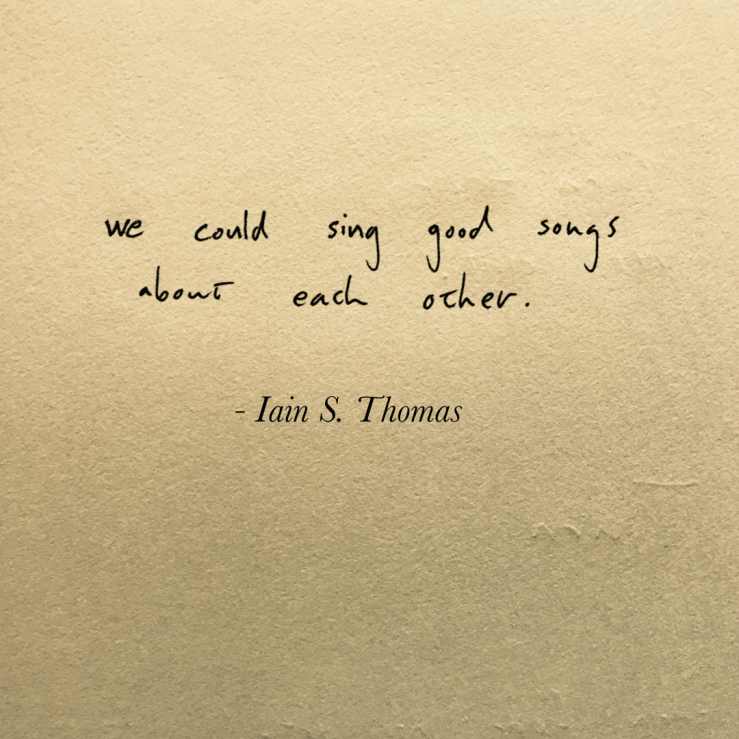 we could sing good songs
about each other.
- Iain S. Thomas